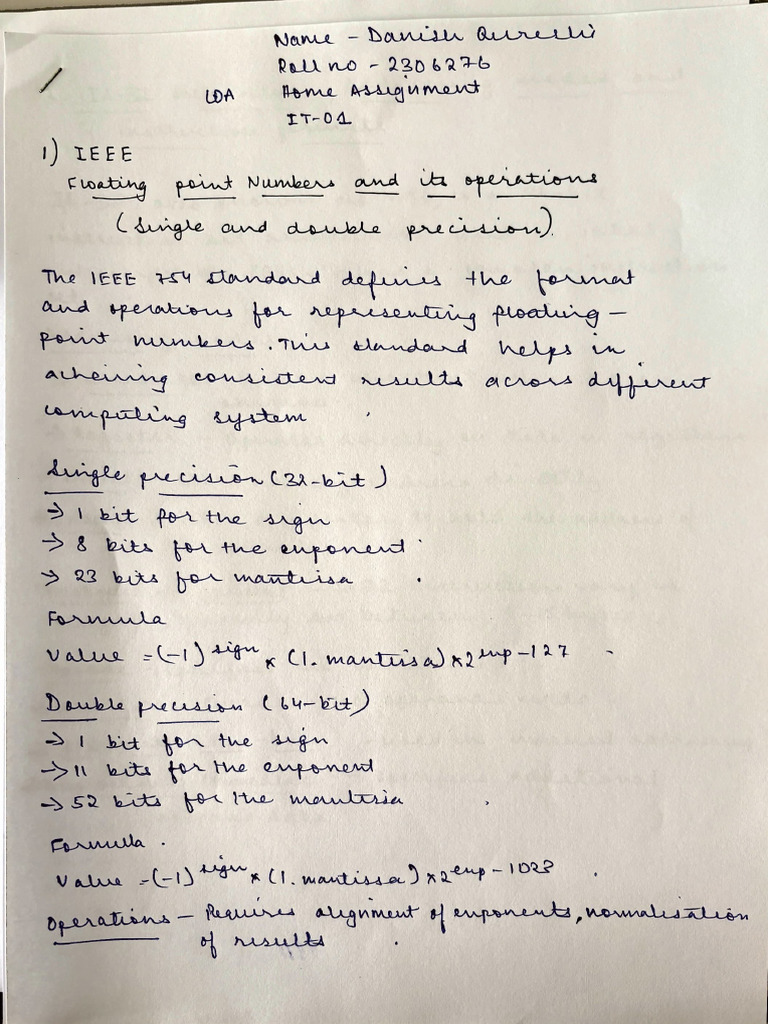 Name - Danish Qureshi
Roll no - 2306276
LDA Home Assignment
IT-01
1) IEEE
Floating point Numbers and its operations
(Single and double precision).
The IEEE 754 standard defines the format
and operations for representing floating-
point numbers. This standard helps in
acheiving consistent results across different
computing system
Single precision (32-bit)
→ 1 bit for the sign
→ 8 bits for the exponent
→ 23 bits for mantissa
Formula
Value = (-1)^sign × (1. mantissa) × 2^exp-127
Double precision (64-bit)
→ 1 bit for the sign
→ 11 bits for the exponent
→ 52 bits for the mantissa
Formula.
Value = (-1)^sign × (1. mantissa) × 2^exp-1023
Operations - Requires alignment of exponents, normalisation
of results